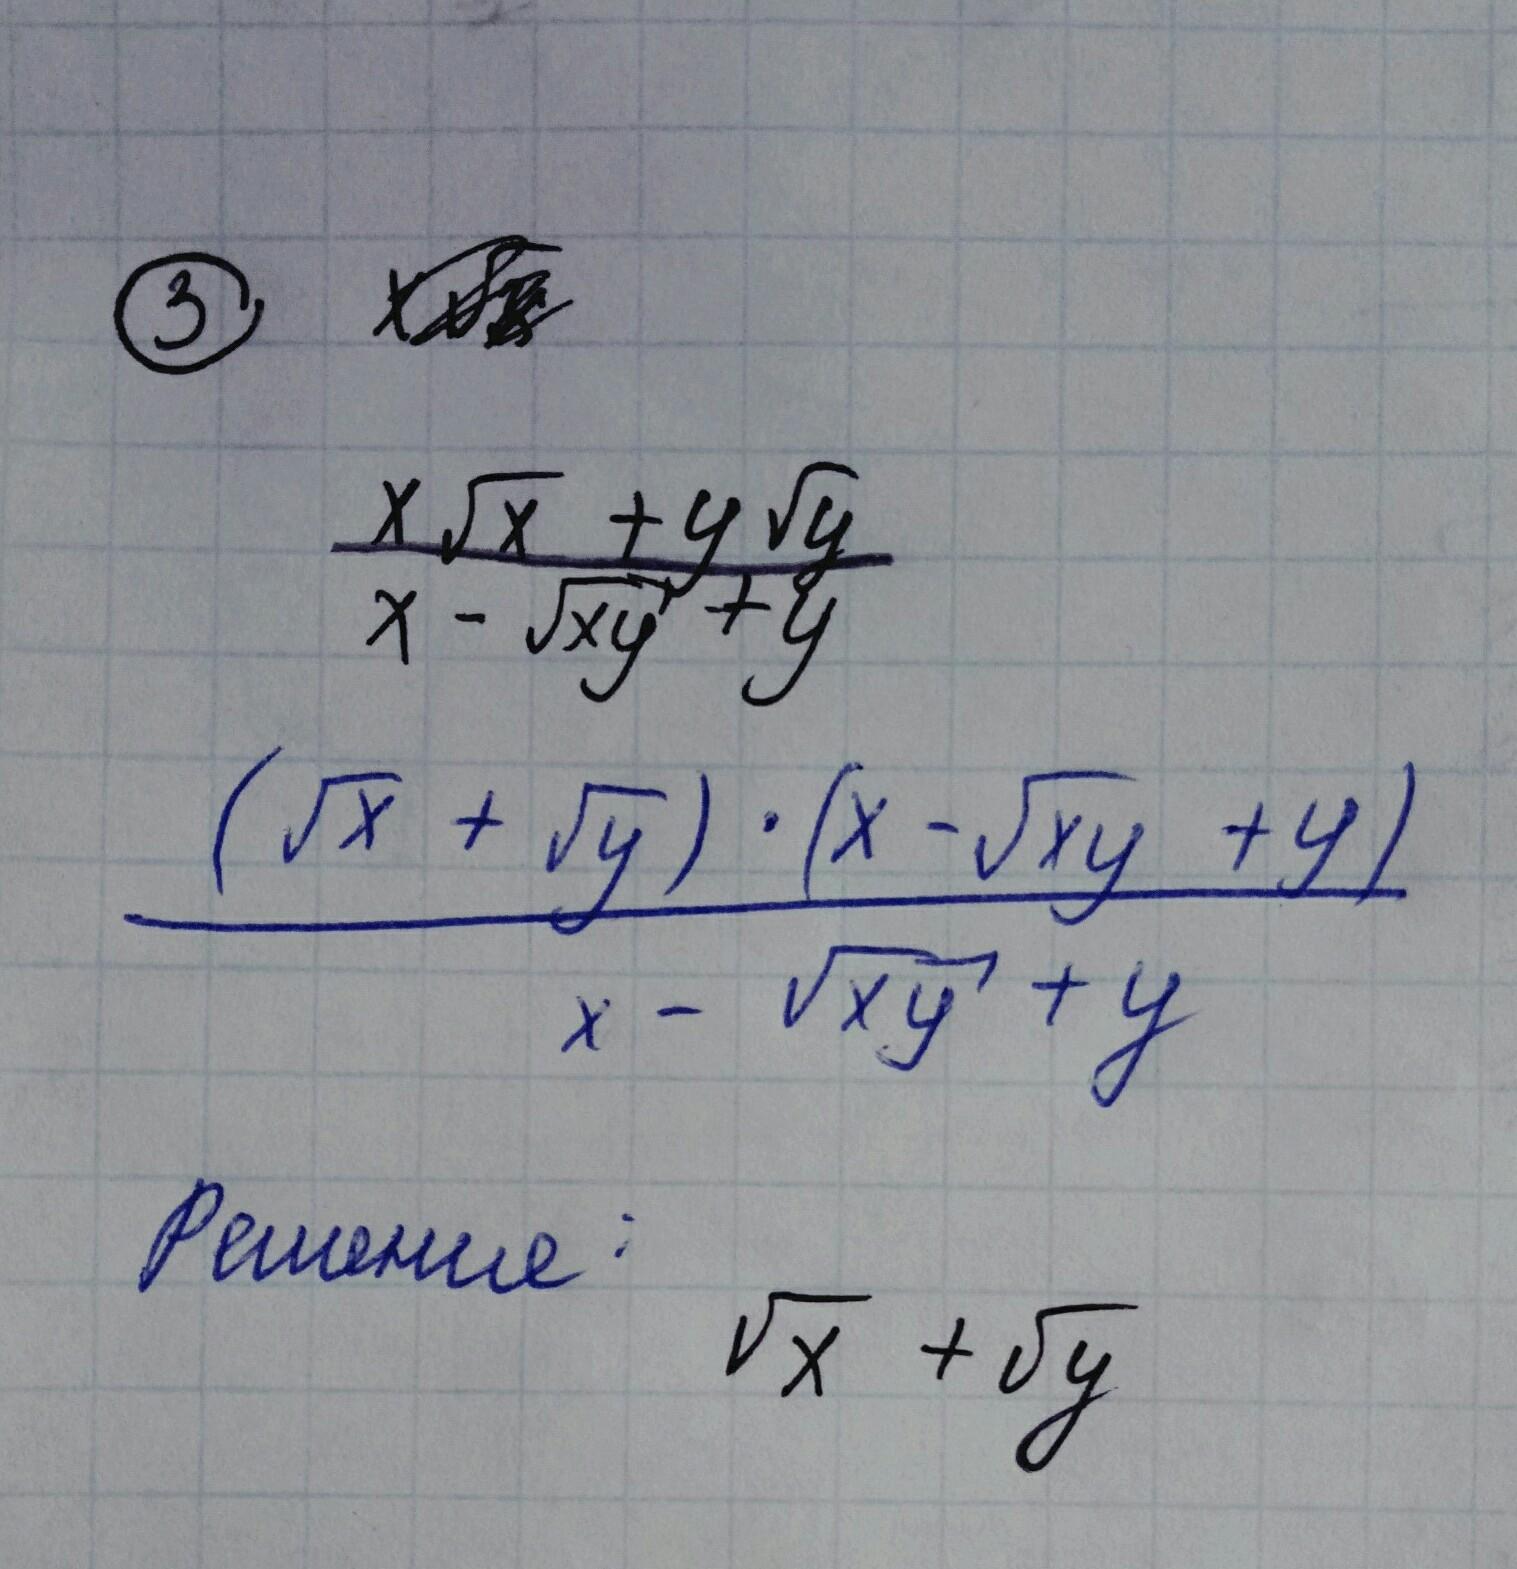 3
x√x + y√y
x - √xy + y
(√x + √y) · (x - √xy + y)
x - √xy + y
Решение:
√x + √y